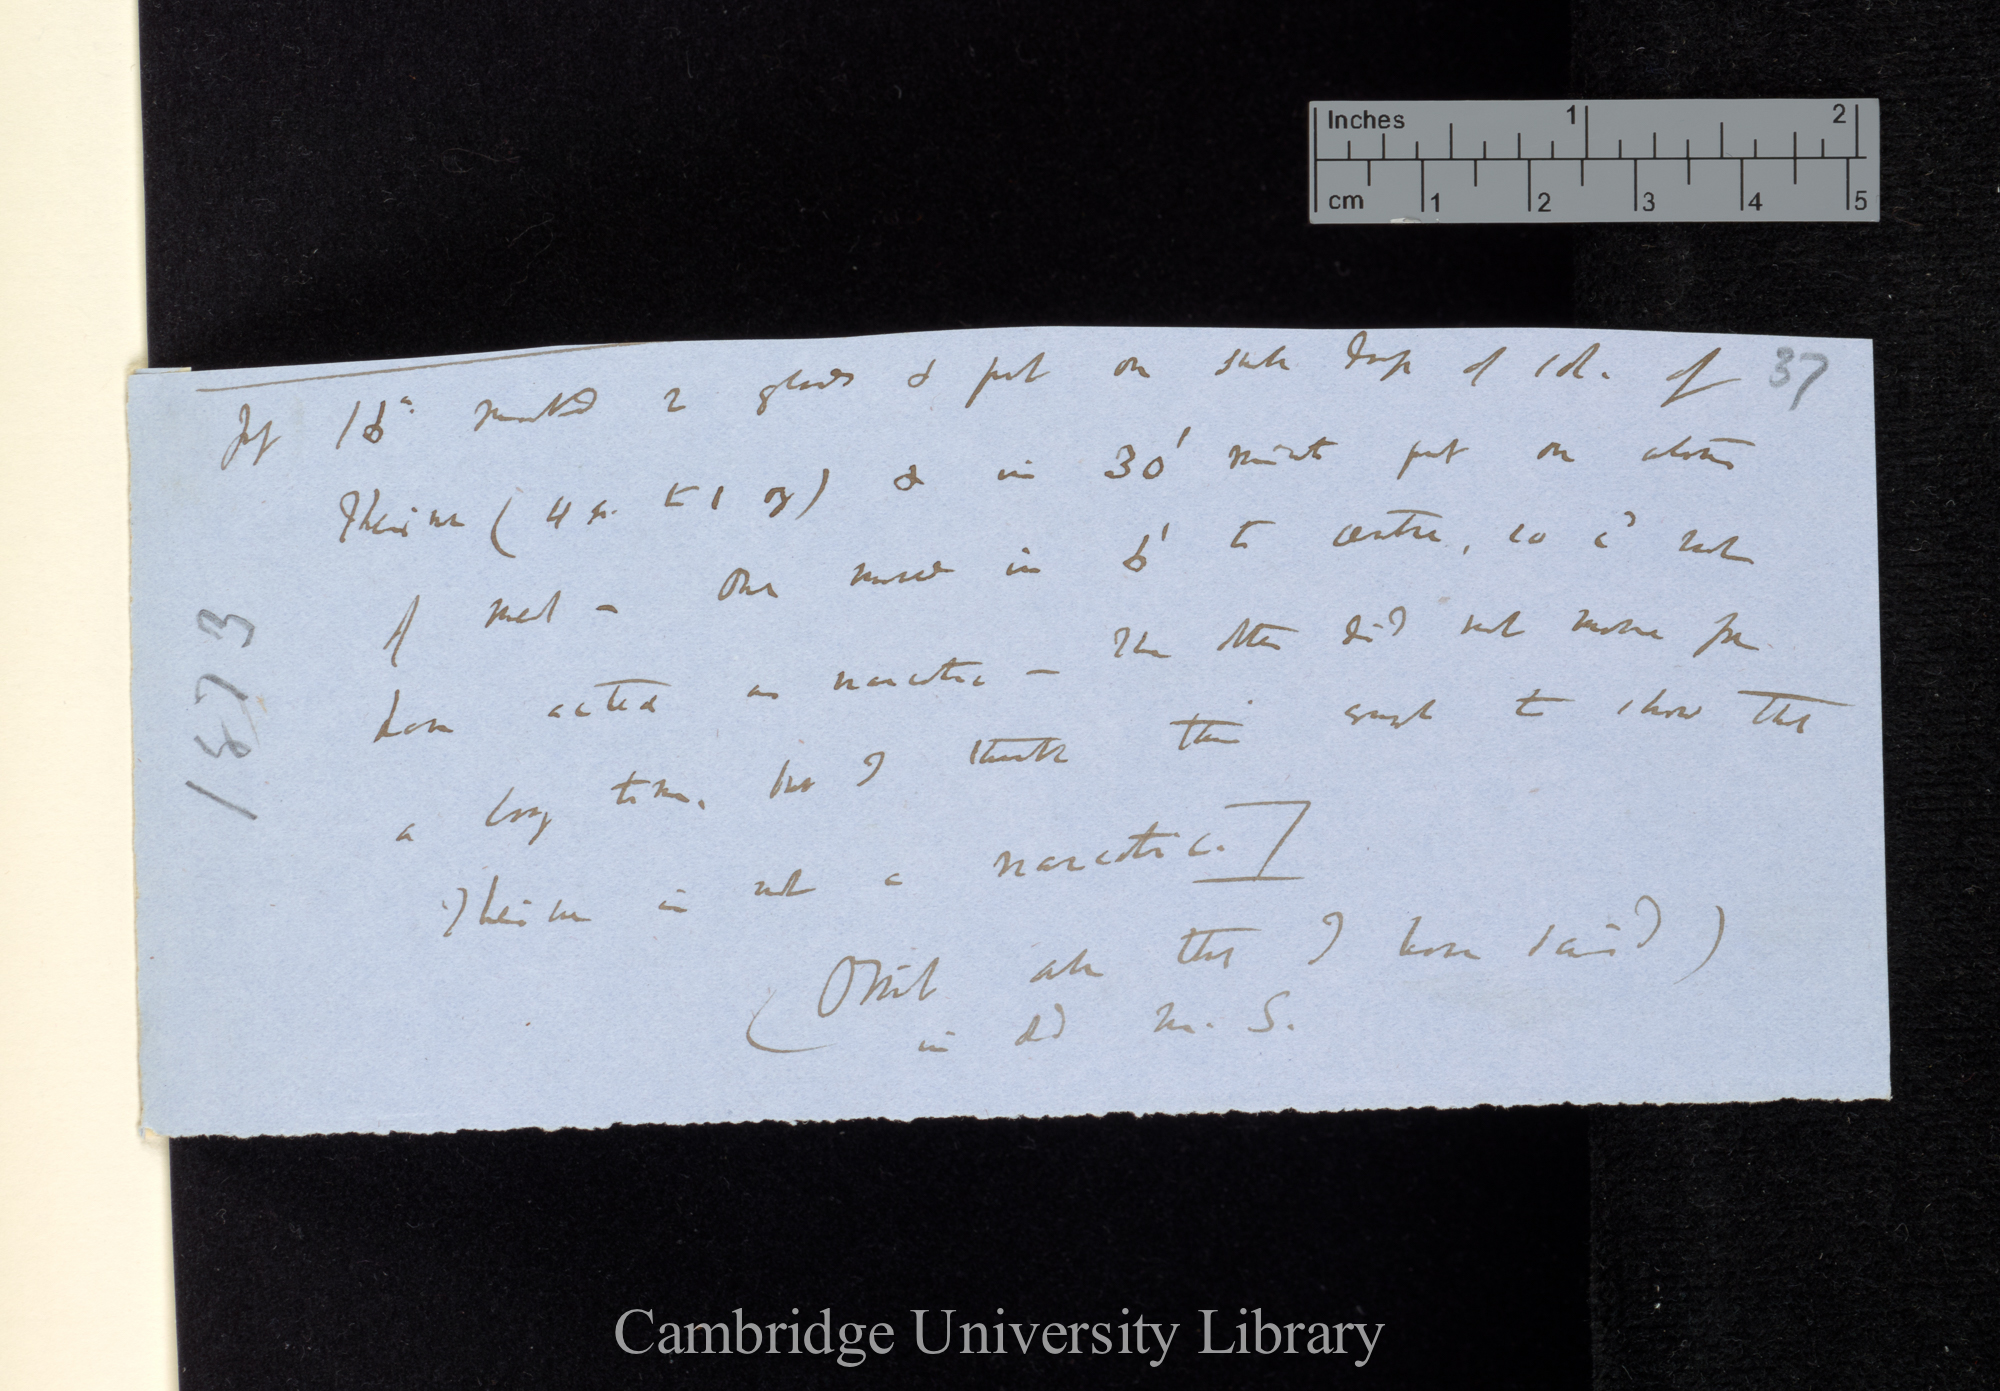 Inches 1 2
cm 1 2 3 4 5
37
July 16th marked 2 glands & put on each drop of sol. of
Theine (4 gr. to 1 oz) & in 30' minutes put on atoms
of meat — One moved in 6' to centre, so cd not
have acted as narcotic — The other did not move for
a long time, but I think this enough to show that
Theine is not a narcotic.]
(Omit all that I have said)
in old M.S.
1873
Cambridge University Library